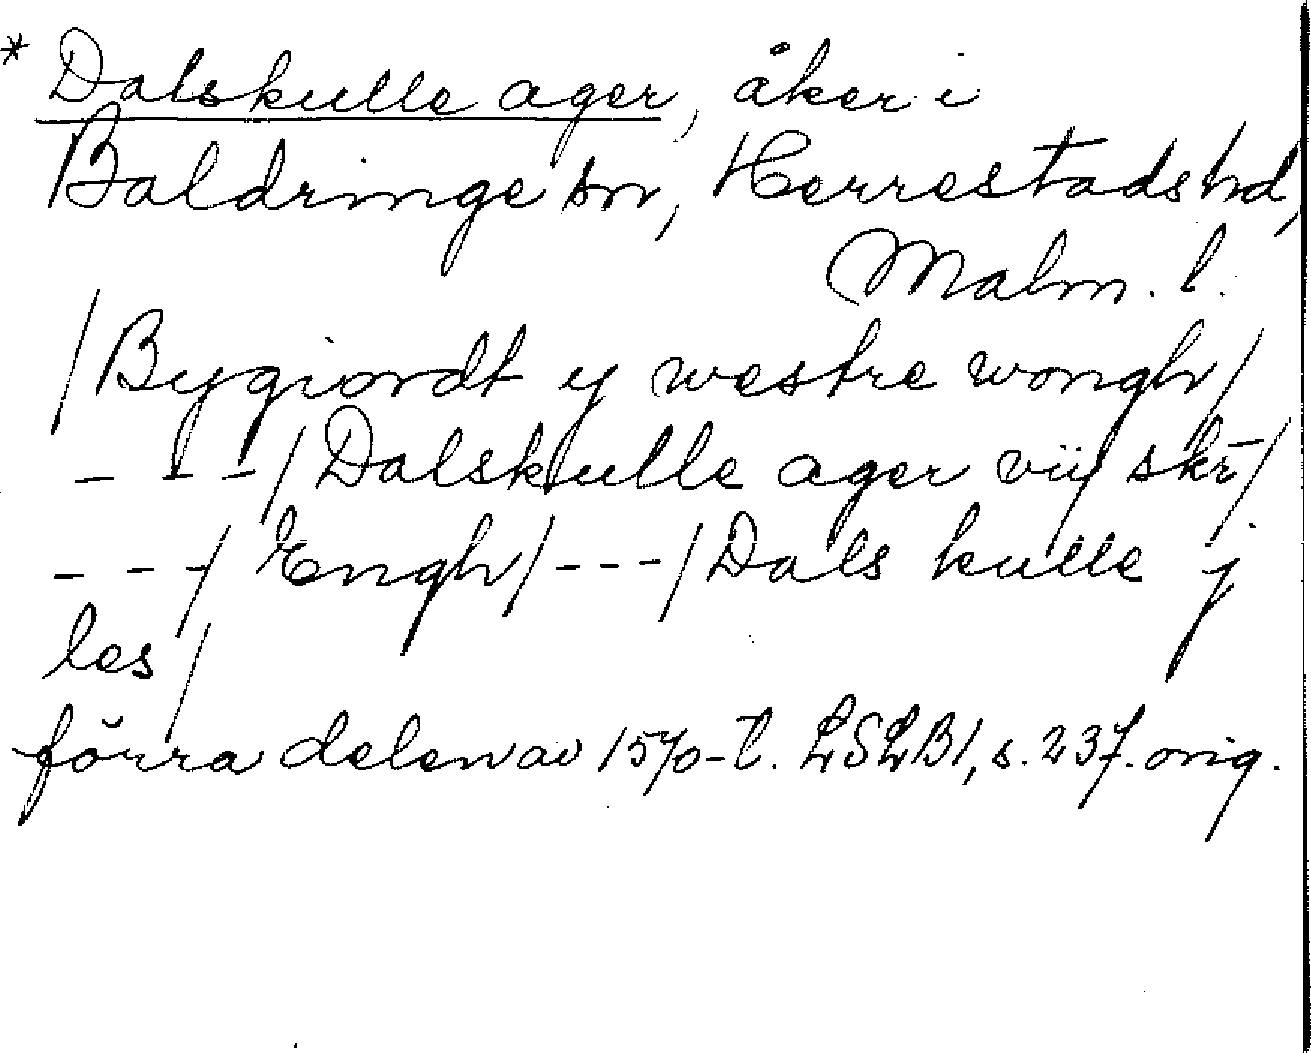 * Dalskulle ager, åker i
Baldringe sn, Herrestads hd,
Malm. l.
/Bygiordt y westre wongh/
- - -/Dalskulle ager viij skr̄/
- - -/ Engh/---/Dals kulle j
les/
förra delen av 1570-t. LSLB1, s. 237. orig.